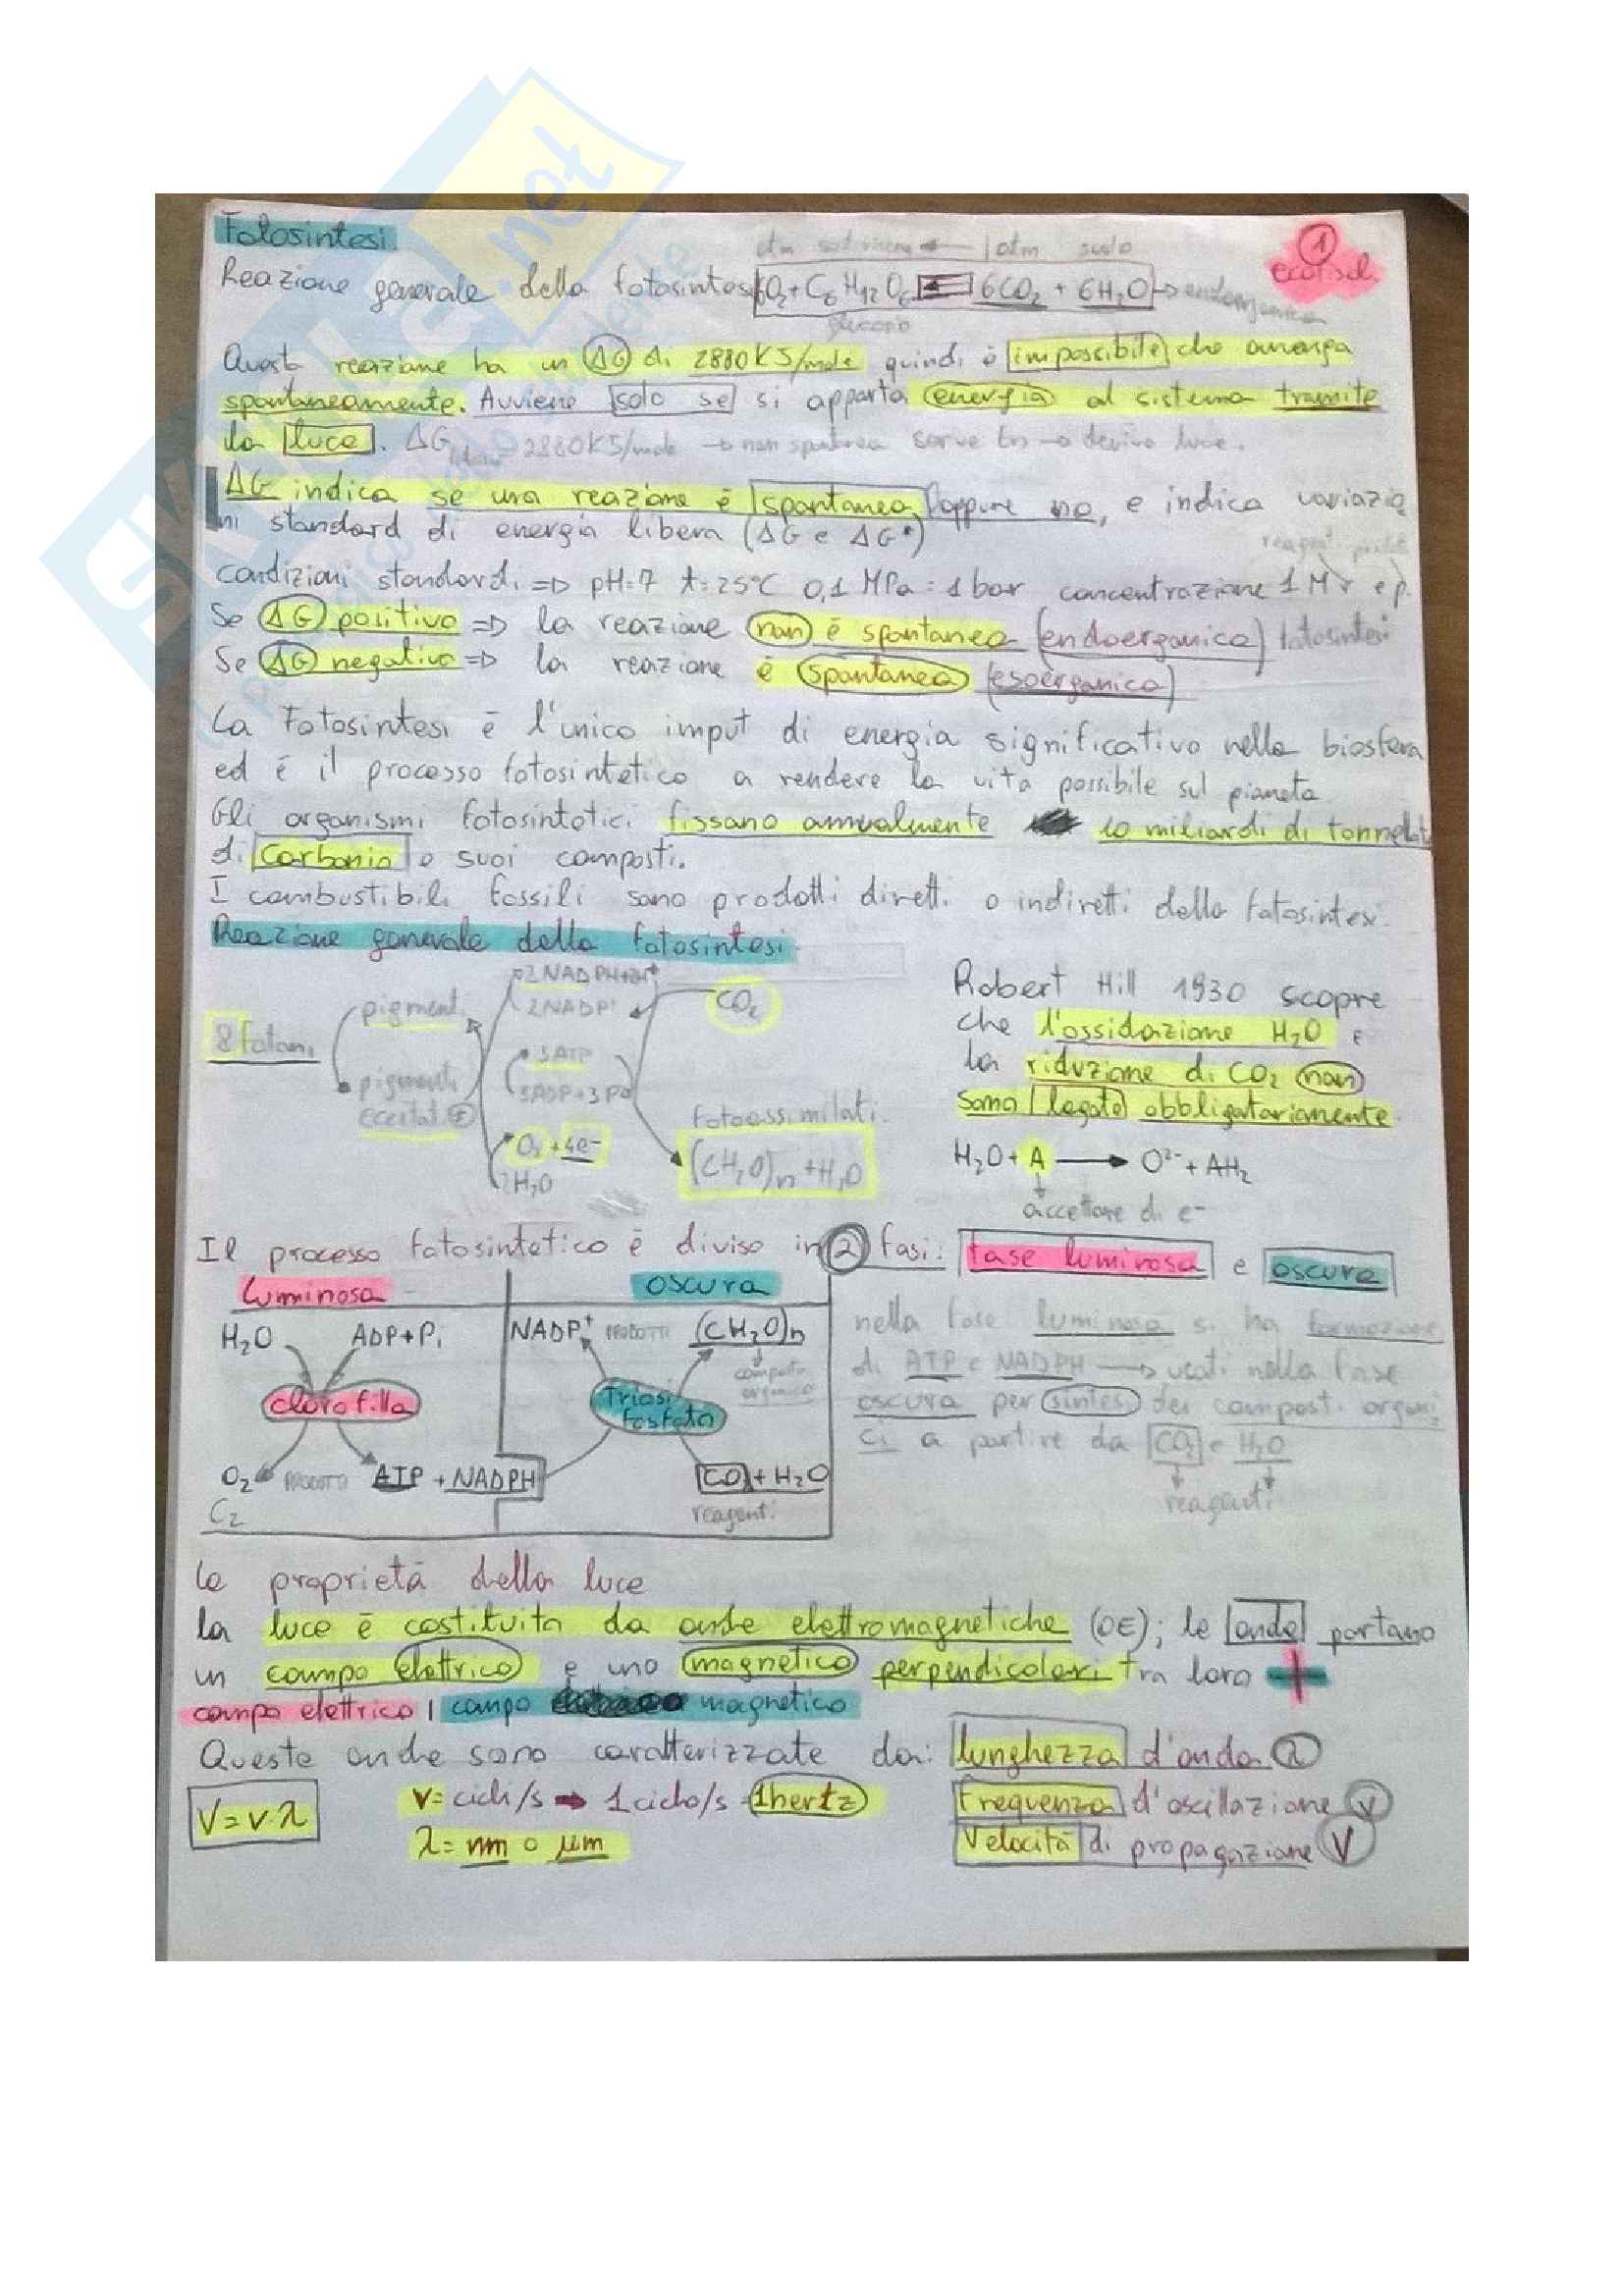 Fotosintesi.
atm ← | atm suolo
1
ecofisiol.
Reazione generale della fotosintesi 6O2 + C6H12O6 ⇐ 6CO2 + 6H2O → endoergonica
glucosio
Questa reazione ha un ΔG di 2880 KJ/mole quindi è impossibile che avvenga
spontaneamente. Avviene solo se si apporta energia al sistema tramite
la luce. ΔG 2880KJ/mole → non spontanea serve En → deriva luce.
ΔG indica se una reazione è spontanea oppure no, e indica variazio
ni standard di energia libera (ΔG e ΔG°)
reagenti prodotti
condizioni standard. ⇒ pH=7 t=25°C 0,1 MPa = 1 bar concentrazione 1M r e p.
Se ΔG positivo ⇒ la reazione non è spontanea (endoerganica) fotosintesi
Se ΔG negativo ⇒ la reazione è spontanea (esoerganica)
La Fotosintesi è l'unico imput di energia significativo nella biosfera
ed è il processo fotosintetico a rendere la vita possibile sul pianeta
Gli organismi fotosintetici fissano annualmente 10 miliardi di tonnellate
di carbonio e suoi composti.
I combustibili fossili sono prodotti diretti o indiretti della fotosintesi.
Reazione generale della fotosintesi.
2NADPH+2H+
pigmenti
2NADP+
CO2
8 fotoni
3ATP
pigmenti
eccitati
3ADP+3Pi
O2 + 4e-
2H2O
fotoassimilati.
(CH2O)n + H2O
Robert Hill 1930 scopre
che l'ossidazione H2O e
la riduzione di CO2 non
sono legate obbligatoriamente.
H2O + A → O2- + AH2
accettore di e-
Il processo fotosintetico è diviso in 2 fasi: fase luminosa e oscura
Luminosa
oscura
H2O ADP+Pi NADP+ PRODOTTI (CH2O)n
composto
organico
clorofilla
Triosi
fosfato
O2 PRODOTTI ATP + NADPH CO2 + H2O
reagenti
C2
nella fase luminosa si ha formazione
di ATP e NADPH → usati nella fase
oscura per sintesi dei composti organi
ci a partire da CO2 e H2O
reagenti
Le proprietà della luce
la luce è costituita da onde elettromagnetiche (OE); le onde portano
un campo elettrico e uno magnetico perpendicolari tra loro
campo elettrico | campo magnetico
Queste onde sono caratterizzate da: lunghezza d'onda λ
V = ν·λ
ν = cicli/s → 1 ciclo/s = 1hertz
Frequenza d'oscillazione ν
λ = nm o μm
Velocità di propagazione V